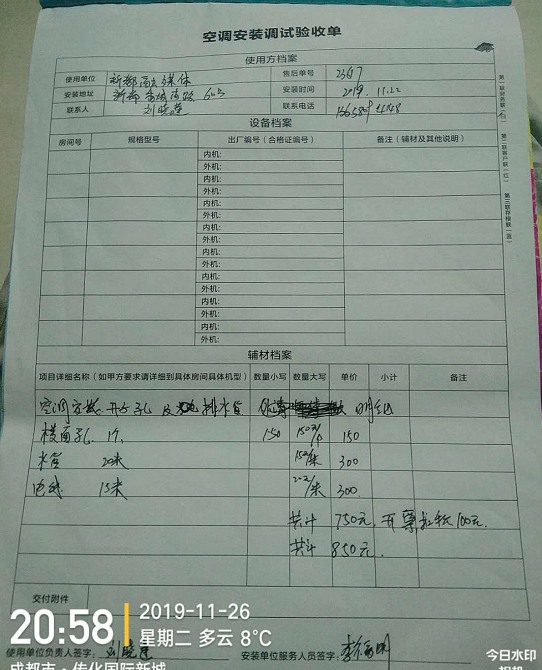 空调安装调试验收单
使用方档案
使用单位 新都融媒体 售后单号 2367
安装地址 新都 安装时间 2019.11.22
联系人 刘晓莲 联系电话
设备档案
房间号 规格型号 出厂编号（合格证编号） 备注（辅材及其他说明）
内机:
外机:
内机:
外机:
内机:
外机:
内机:
外机:
内机:
外机:
内机:
外机:
内机:
外机:
内机:
外机:
辅材档案
项目详细名称（如甲方要求请详细到具体房间具体机型） 数量小写 数量大写 单价 小计 备注
空调安装 孔及 排水管 明细
楼面孔 1个 150 150元/个 150
水管 20米 15元/米 300
电线 15米 20元/米 300
共计 750元. 开 100元.
共计 850元.
交付附件
20:58
2019-11-26
星期二 多云 8℃
使用单位负责人签字: 安装单位服务人员签字:
成都市·传化国际新城
今日水印
相机
第一联财务联(白) 第二联客户联(红) 第三联存根联(蓝)